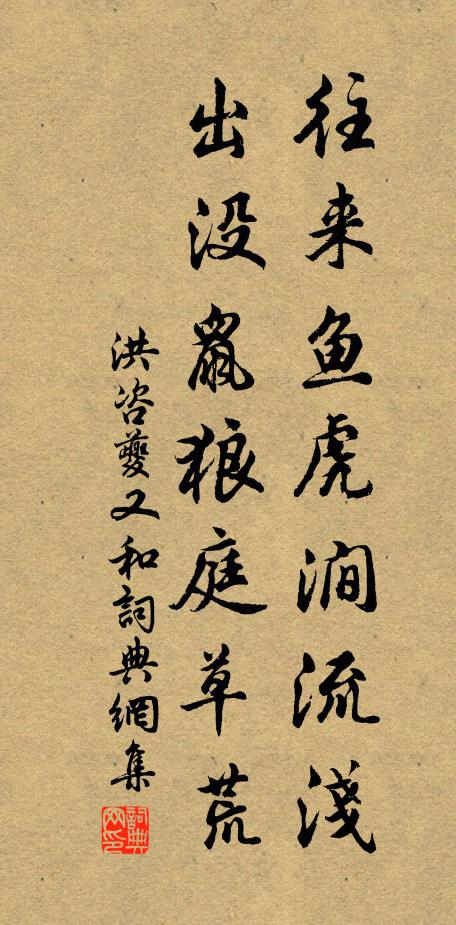 往来鱼虎涧流淺
出没鼠狼庭草荒
洪咨夔又和詞典網集
詞典网印